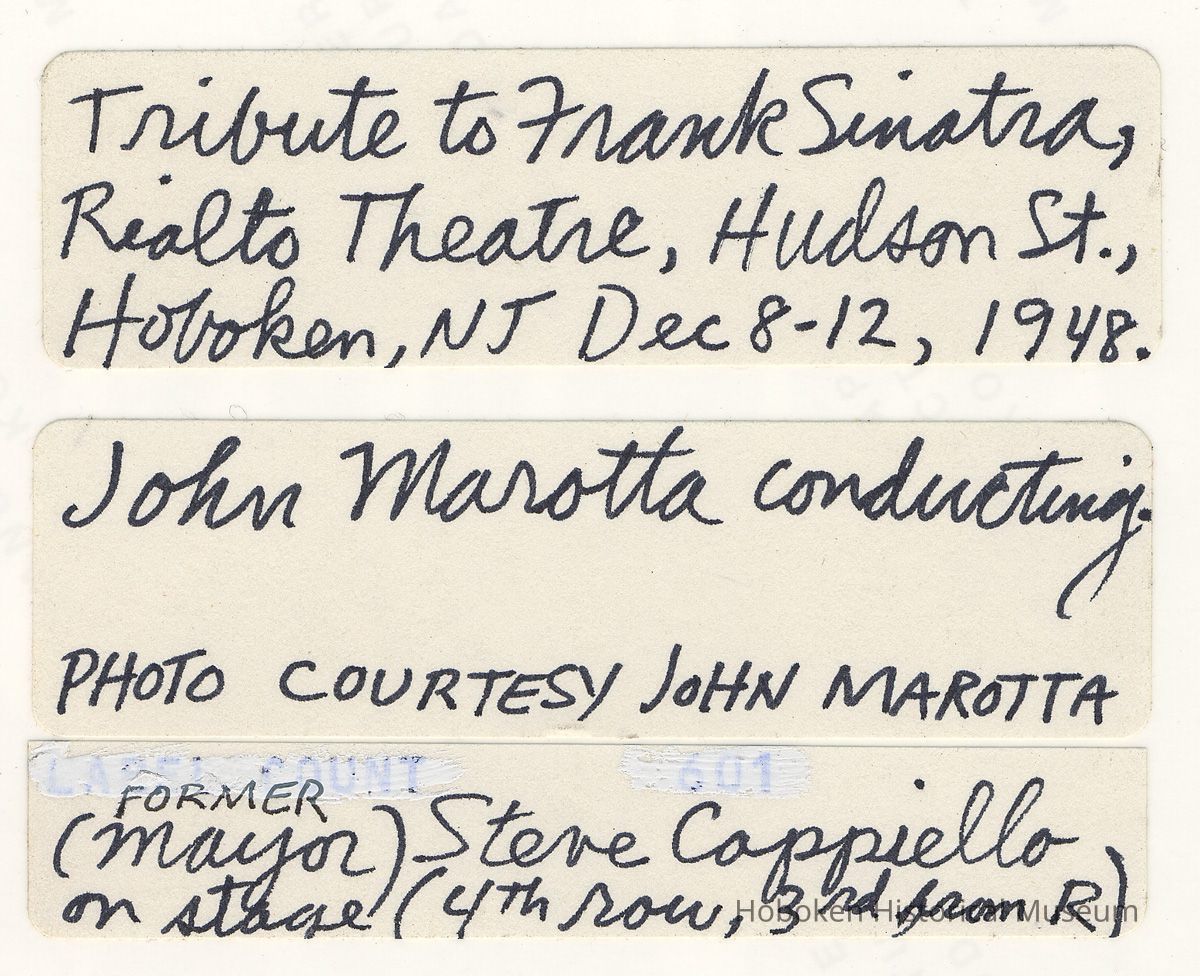 Tribute to Frank Sinatra,
Rialto Theatre, Hudson St.,
Hoboken, NJ Dec 8-12, 1948.
John Marotta conducting.
PHOTO COURTESY JOHN MAROTTA
LABEL COUNT 601
FORMER
(Mayor) Steve Cappiello,
on stage (4th row, 3rd from R)
Hoboken Historical Museum